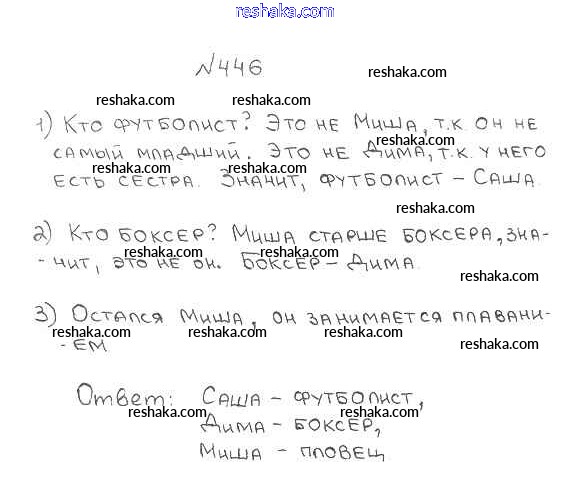 reshaka.com
№446
reshaka.com
reshaka.com reshaka.com
1) Кто футболист? Это не Миша, т.к. он не
reshaka.com
самый младший. Это не Дима, т.к. у него
reshaka.com reshaka.com
есть сестра. Значит, футболист – Саша.
reshaka.com
2) Кто боксер? Миша старше боксера, зна-
reshaka.com reshaka.com
-чит, это не он. Боксер – Дима.
reshaka.com
3) Остался Миша, он занимается плавани-
reshaka.com reshaka.com reshaka.com
-ем
reshaka.com
Ответ: Саша – футболист,
reshaka.com reshaka.com
Дима – боксер,
Миша – пловец